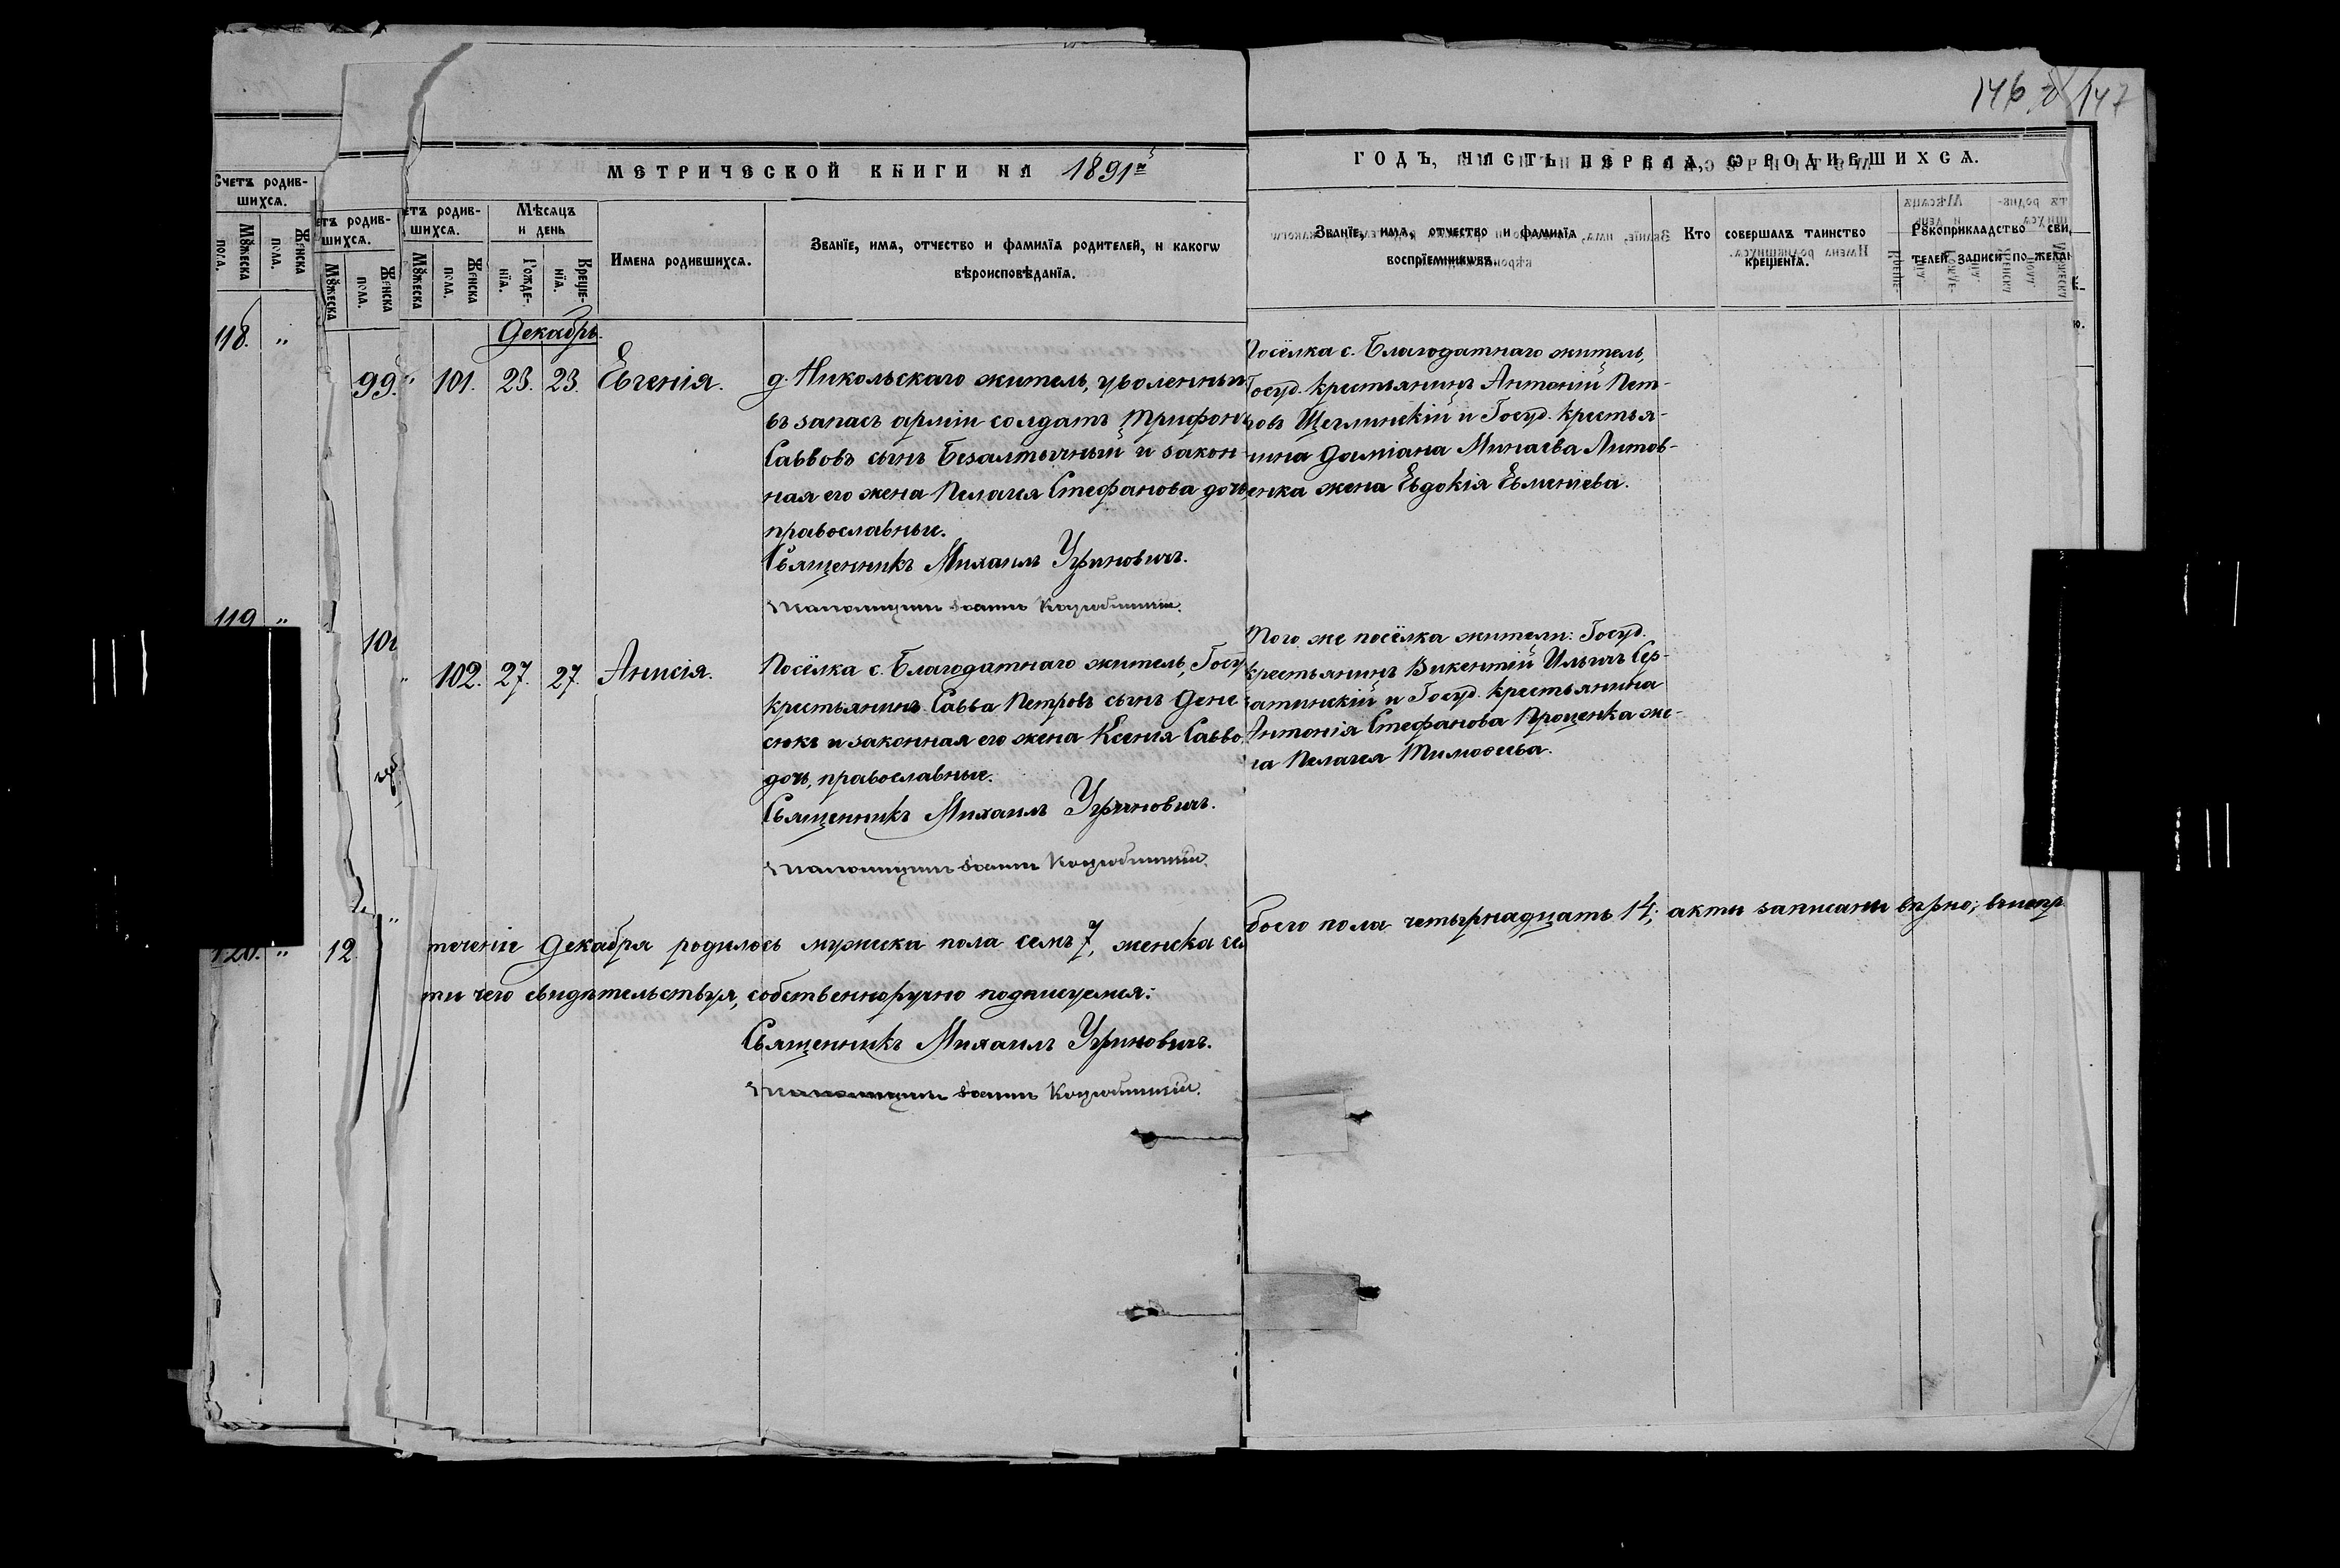 146 147
МЕТРИЧЕСКОЙ КНИГИ НА 1891й
ГОДЪ, ЧАСТЬ ПЕРВАЯ, Ѡ РОДИВШИХСѦ.
Счетъ родив-
шихсѧ.
Мꙋжеска пола.
Женска пола.
118. "
119 "
120. "
етъ родив-
шихсѧ.
Мꙋжеска
Женска пола.
99.
12
етъ родив-
шихсѧ.
Мꙋжеска
Женска пола.
Мѣсѧцъ
и день
Рожде-
нїѧ.
Креще-
нїѧ.
Имена родившихсѧ.
Званїе, имѧ, отчество и фамилїѧ родителей, и какогѡ
вѣроисповѣданїѧ.
Званїе, имѧ, отчество и фамилїѧ
воспрїемникѡвъ.
Кто совершалъ таинство
крещенїѧ.
Рꙋкоприкладство сви
телей записи по желан
Декабрь.
" 101. 23. 23. Евгенія.
д. Никольскаго житель, уволенный
въ запасъ арміи солдатъ Трифонъ
Саввовъ сынъ Безалтычный и закон-
ная его жена Пелагея Стефанова дочь,
православные.
Священникъ Михаилъ Угриновичъ.
Іоаннъ Коцюбинскій.
Посёлка с. Благодатнаго житель,
Госуд. крестьянинъ Антоній Пет-
ровъ Щеглинскій и Госуд. крестья-
нина Даміана Минаева Литов-
енка жена Евдокія Евменіева.
" 102. 27. 27. Анисія.
Посёлка с. Благодатнаго житель, Госу
крестьянинъ Савва Петровъ сынъ Дене
сюкъ и законная его жена Ксенія Савво
дочь, православные.
Священникъ Михаилъ Угриновичъ.
Іоаннъ Коцюбинскій.
Того же посёлка жители: Госуд.
крестьянинъ Викентій Ильичъ Сер-
атинскій и Госуд. крестьянина
Антонія Стефанова Проценка же-
на Пелагея Тимоѳеева.
теченіе Декабря родилось мужеска пола семь 7, женска се
боего пола четырнадцать 14; акты записаны вѣрно; въ
ти чего свидѣтельствуя, собственноручно подписуемся:
Священникъ Михаилъ Угриновичъ.
Іоаннъ Коцюбинскій.